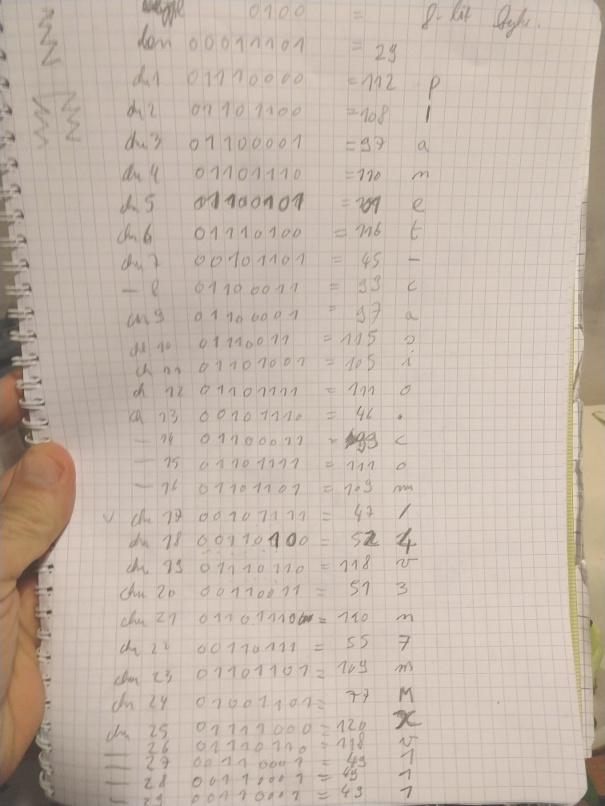 0100 = 8-bit byte.
len 00011101 = 29
ch 1 01110000 = 112 p
ch 2 01101100 = 108 l
ch 3 01100001 = 97 a
ch 4 01101110 = 110 n
ch 5 01100101 = 101 e
ch 6 01110100 = 116 t
ch 7 00101101 = 45 -
— 8 01100011 = 99 c
ch 9 01100001 = 97 a
ch 10 01110011 = 115 s
ch 11 01101001 = 105 i
ch 12 01101111 = 111 o
ch 13 00101110 = 46 .
— 14 01100011 = 99 c
— 15 01101111 = 111 o
— 16 01101101 = 109 m
v chr 17 00101111 = 47 /
chr 18 00110100 = 52 4
chr 19 01110110 = 118 v
chr 20 00110011 = 51 3
chr 21 01101110 = 110 n
chr 22 00110111 = 55 7
chr 23 01101101 = 109 m
chr 24 01001101 = 77 M
chr 25 01111000 = 120 x
— 26 01110110 = 118 v
— 27 00110001 = 49 1
— 28 00110001 = 49 1
— 29 00110001 = 49 1